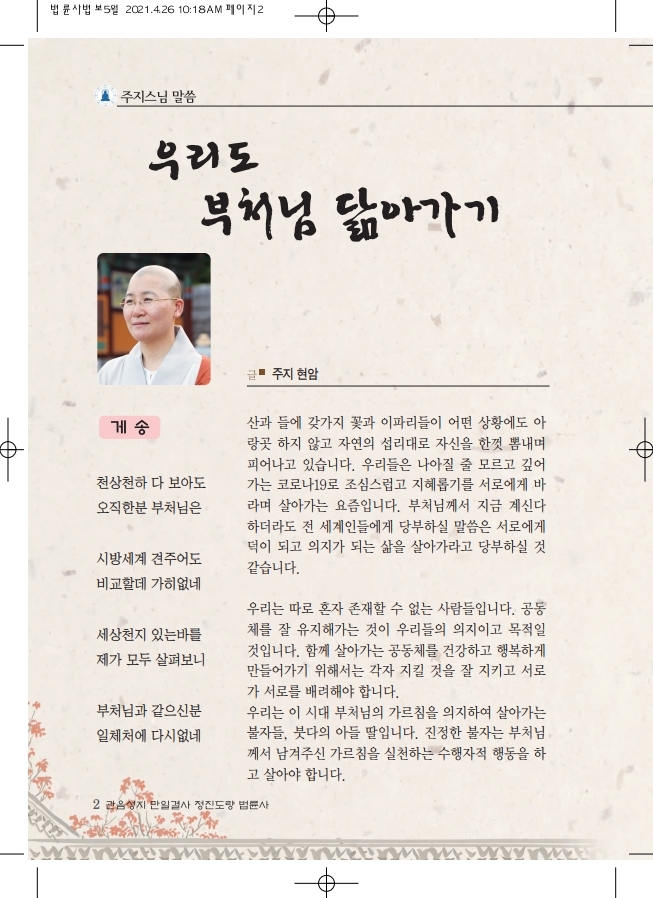 법륜사법보5월  2021.4.26 10:18 AM 페이지2
주지스님 말씀
우리도
부처님 닮아가기
글■ 주지 현암
게 송
천상천하 다 보아도
오직한분 부처님은
시방세계 견주어도
비교할데 가히없네
세상천지 있는바를
제가 모두 살펴보니
부처님과 같으신분
일체처에 다시없네
산과 들에 갖가지 꽃과 이파리들이 어떤 상황에도 아
랑곳 하지 않고 자연의 섭리대로 자신을 한껏 뽐내며
피어나고 있습니다. 우리들은 나아질 줄 모르고 깊어
가는 코로나19로 조심스럽고 지혜롭기를 서로에게 바
라며 살아가는 요즘입니다. 부처님께서 지금 계신다
하더라도 전 세계인들에게 당부하실 말씀은 서로에게
덕이 되고 의지가 되는 삶을 살아가라고 당부하실 것
같습니다.
우리는 따로 혼자 존재할 수 없는 사람들입니다. 공동
체를 잘 유지해가는 것이 우리들의 의지이고 목적일
것입니다. 함께 살아가는 공동체를 건강하고 행복하게
만들어가기 위해서는 각자 지킬 것을 잘 지키고 서로
가 서로를 배려해야 합니다.
우리는 이 시대 부처님의 가르침을 의지하여 살아가는
불자들, 붓다의 아들 딸입니다. 진정한 불자는 부처님
께서 남겨주신 가르침을 실천하는 수행자적 행동을 하
고 살아야 합니다.
2 관음성지 만일결사 정진도량 법륜사